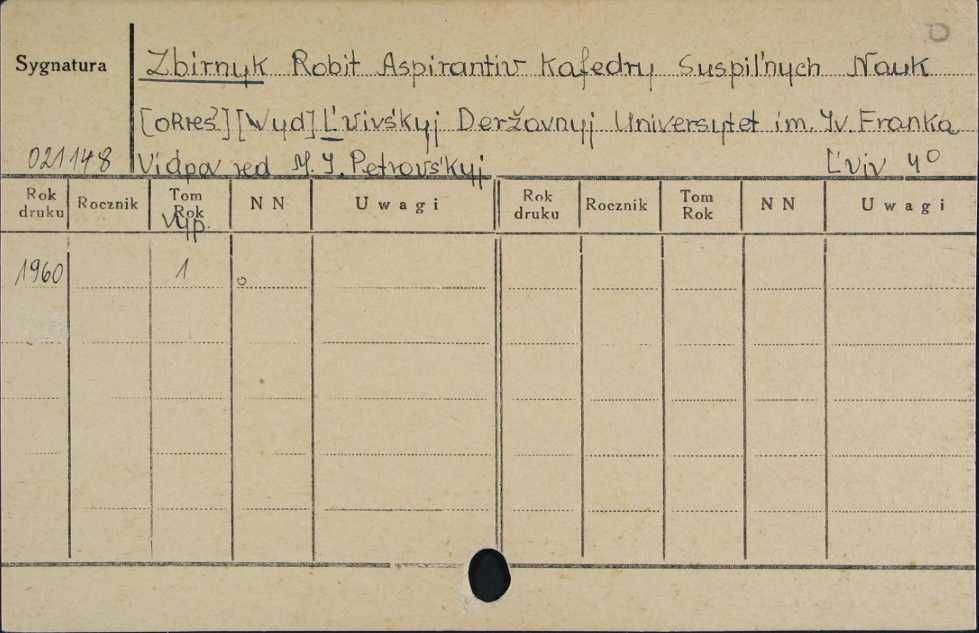 Sygnatura
Zbirnyk Robit Aspirantiv Kafedry Suspil'nych Nauk
[okreś] [Wyd] L'vivśkyj Deržavnyj Universytet im. Iv. Franka
021148 Vidpov red M. I. Petrovśkyj L'viv 4°
Rok druku Rocznik Tom Rok Vyp. NN Uwagi Rok druku Rocznik Tom Rok NN Uwagi
1960 1